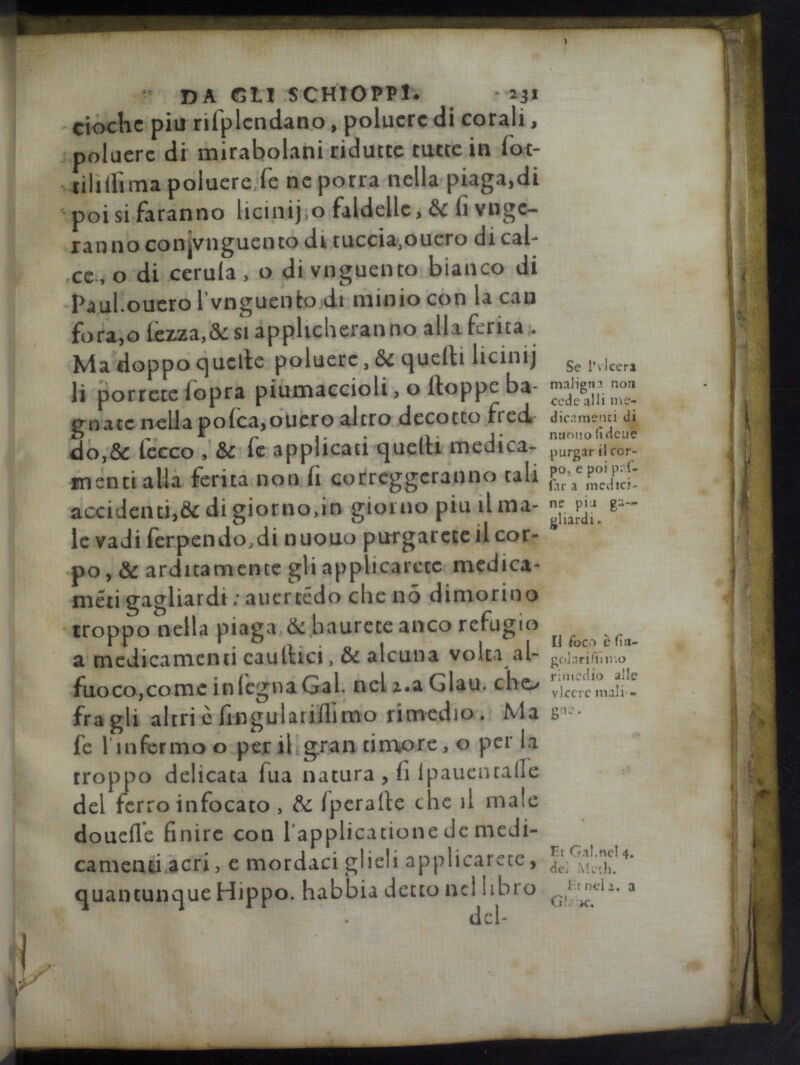 DA GLI SCHIOPPI. 231
cioche piu riſplendano, poluere di corali,
poluere di mirabolani ridutte tutte in ſot-
tiliſſima poluere, ſe ne porra nella piaga, di
poi si faranno licinij, o faldelle, & ſi vnge-
ranno con vnguento di tuccia, ouero di cal-
ce, o di ceruſa, o di vnguento bianco di
Paul. ouero l'vnguento di minio con la can
fora, o ſezza, & si applicheranno alla ferita.
Ma doppo queſte poluere, & queſti licinij
li porrete ſopra piumaccioli, o ſtoppe ba-
gnate nella poſca, ouero altro decotto fred
do, & ſecco, & ſe applicati queſti medica-
menti alla ferita non ſi correggeranno tali
accidenti, & di giorno, in giorno piu il ma-
le vadi ſerpendo, di nuouo purgarete il cor-
po, & arditamente gli applicarete medica-
mẽti gagliardi: auertẽdo che nõ dimorino
troppo nella piaga, & haurete anco refugio
a medicamenti cauſtici, & alcuna volta al
fuoco, come inſegna Gal. nel 2. a Glau. che
fra gli altri è ſingulariſſimo rimedio. Ma
ſe l'infermo o per il gran timore, o per la
troppo delicata ſua natura, ſi ſpauentaſſe
del ferro infocato, & ſperaſte che il male
doueſſe finire con l'applicatione de medi-
camenti acri, e mordaci glieli applicarete,
quantunque Hippo. habbia detto nel libro
del-
Se l'vlcera
maligna non
cede alli me-
dicamenti di
nuouo ſi deue
purgar il cor-
po, e poi paſ-
ſar a medici-
ne piu ga-
gliardi.
Il foco è ſin-
golariſimo
rimedio alle
vlcere mali-
gne.
Et Gal. nel 4.
del Meth.
Et nel 2. a
Glauc.